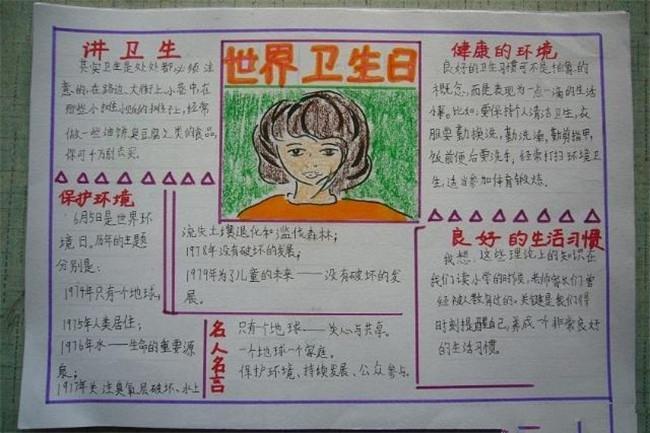 世界卫生日
讲卫生
其实卫生是处处都必须注
意的,在路边、大街上、小巷中,在
那些小摊小贩的摊子上,经常
做一些油饼臭豆腐之类的食品,
你可千万别去买。
保护环境
6月5日是世界环
境日。历年的主题
分别是:
1974年只有一个地球;
1975年人类居住;
1976年水——生命的重要源
泉;
1977年关注臭氧层破坏、水土
流失土壤退化和滥伐森林;
1978年没有破坏的发展;
1979年为了儿童的未来——没有破坏的发
展。
名人名言
只有一个地球——关心与共享。
一个地球一个家庭。
保护环境、持续发展、公众参与。
健康的环境
良好的卫生习惯可不是抽象的
概念,而是表现为一点一滴的生活
小事。比如,要保持个人清洁卫生,衣
服要勤换洗,勤洗澡,勤剪指甲,
饭前便后要洗手,经常打扫环境卫
生,适当参加体育锻炼。
良好的生活习惯
我想,这些理论上的知识在
我们读小学的时候,老师家长们曾
经被人教育过的。关键是我们得
时刻提醒自己,养成一个非常良好
的生活习惯。